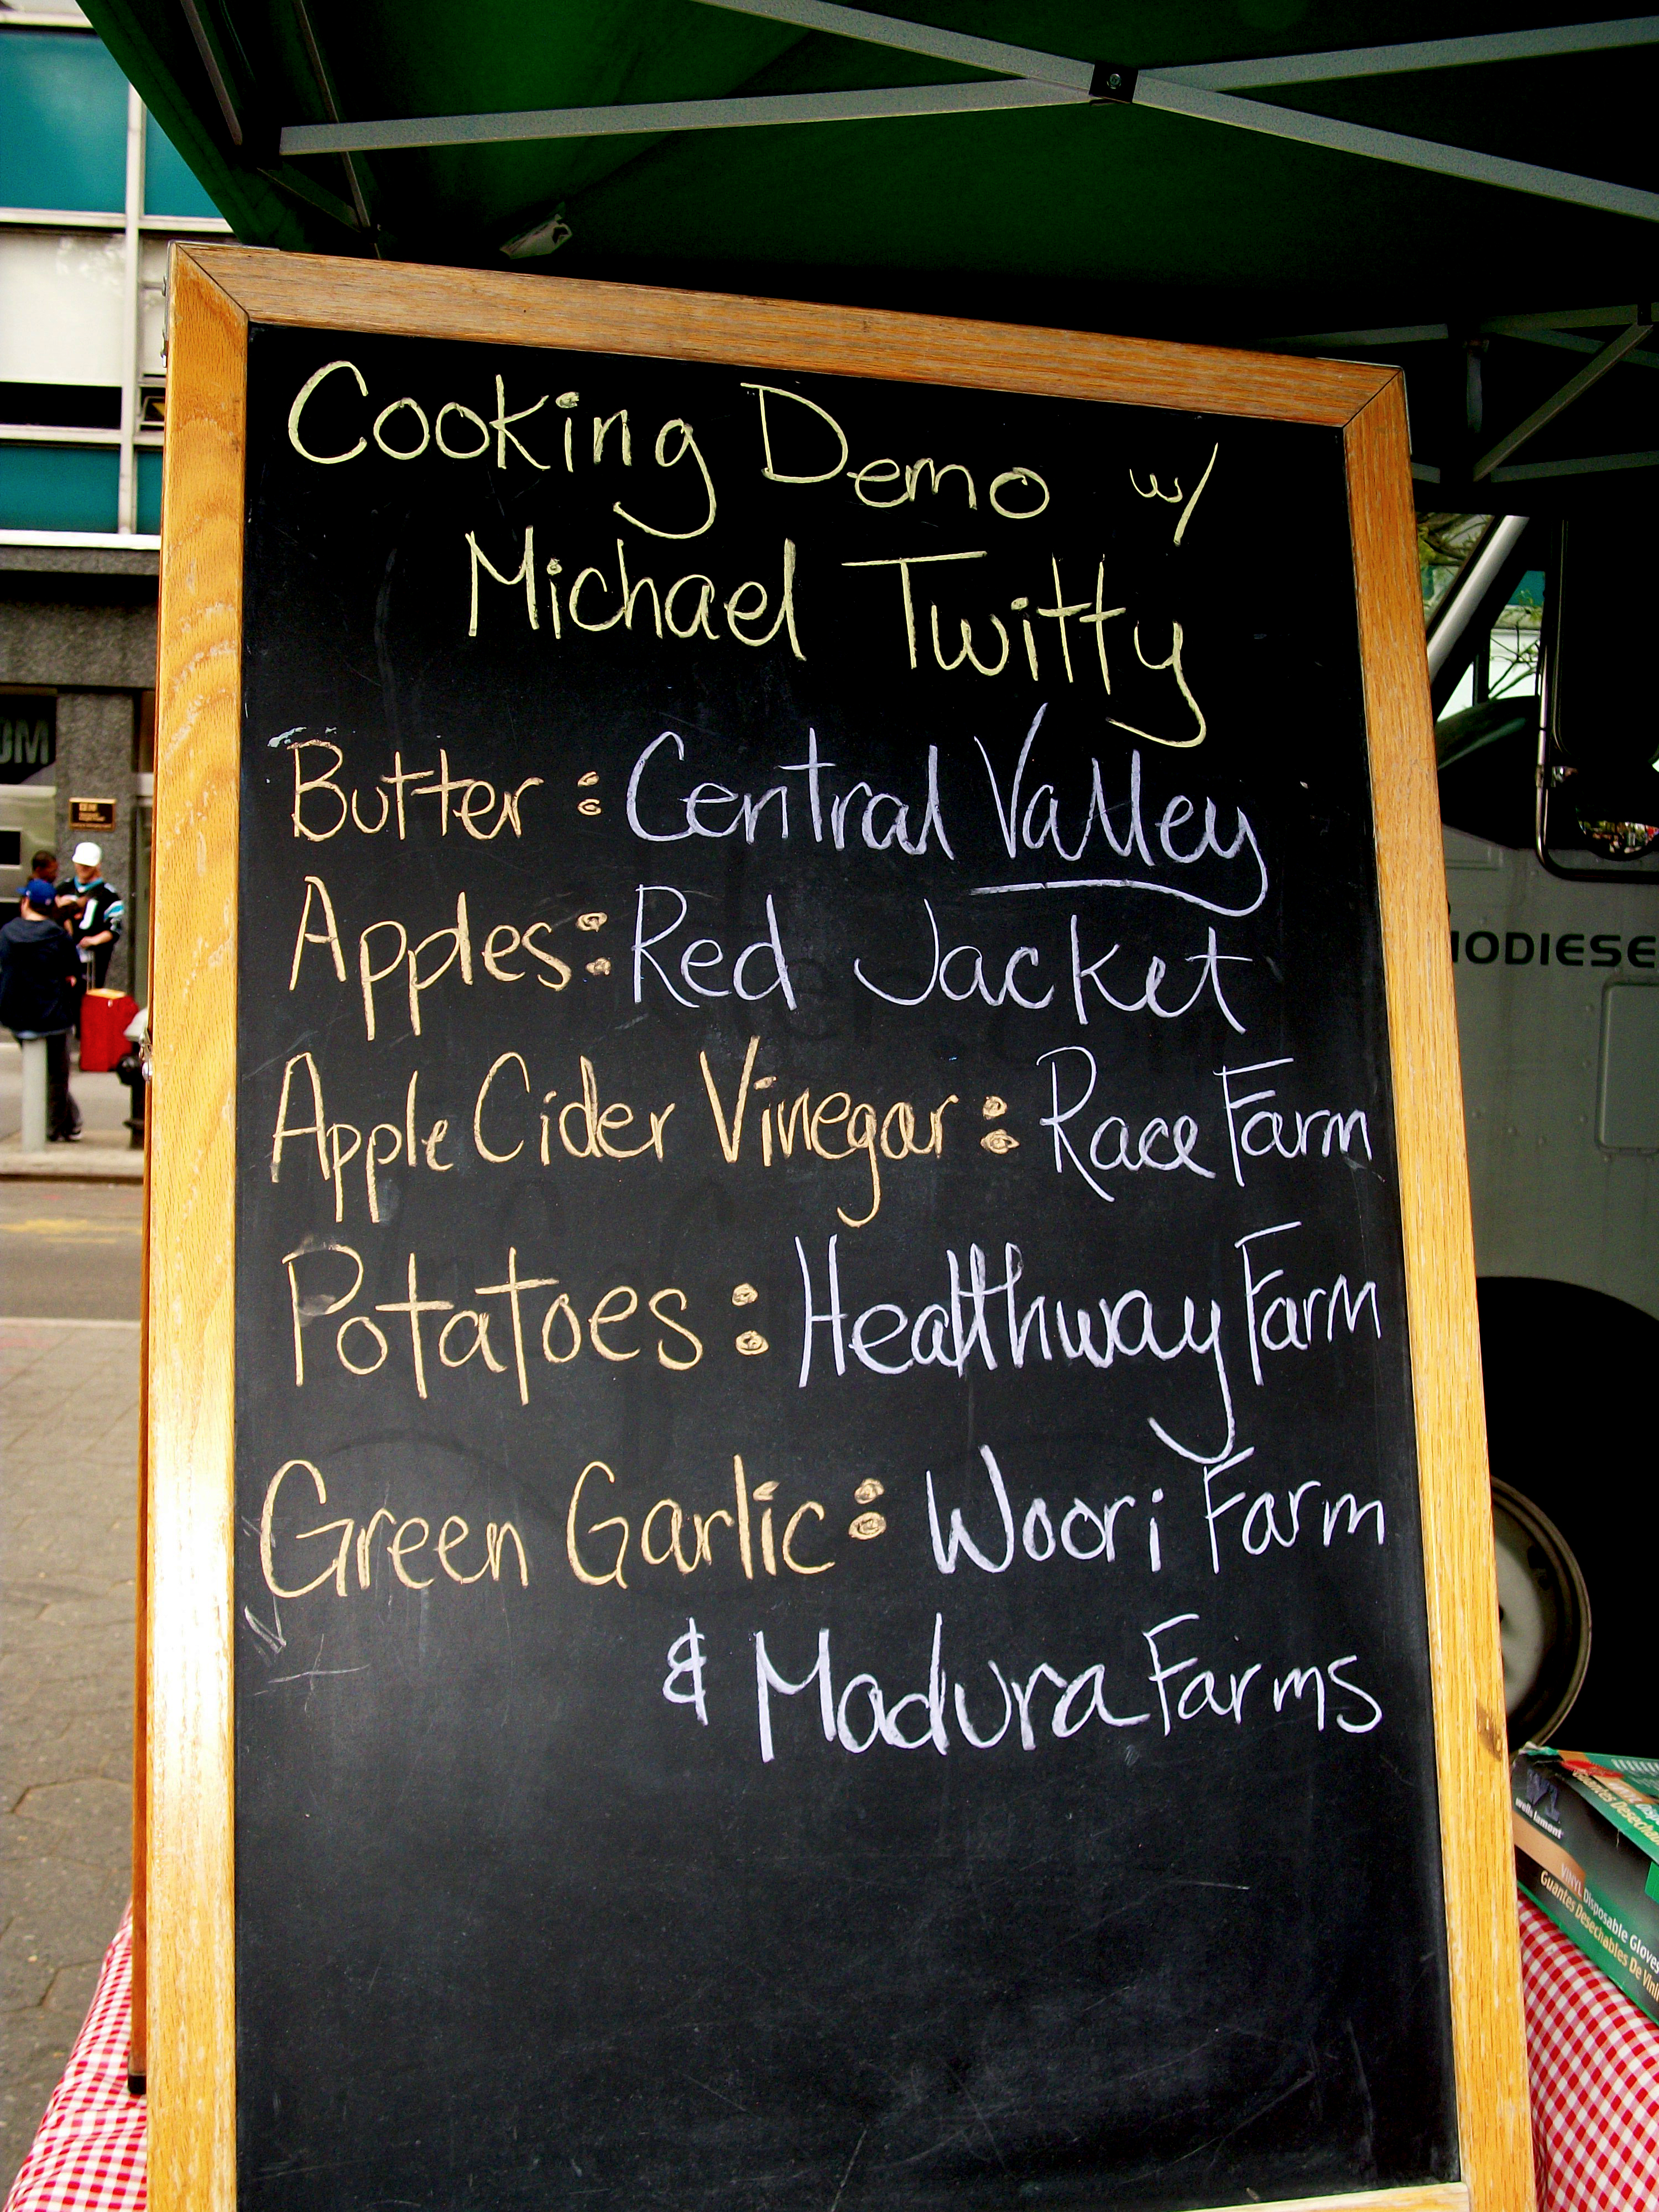 Cooking Demo w/
Michael Twitty
Butter : Central Valley
Apples : Red Jacket
Apple Cider Vinegar : Race Farm
Potatoes : Healthway Farm
Green Garlic : Woori Farm
& Madura Farms
IODIESE
UM
wells lamont
VINYL Disposable Gloves
Guantes Desechables De Vinil